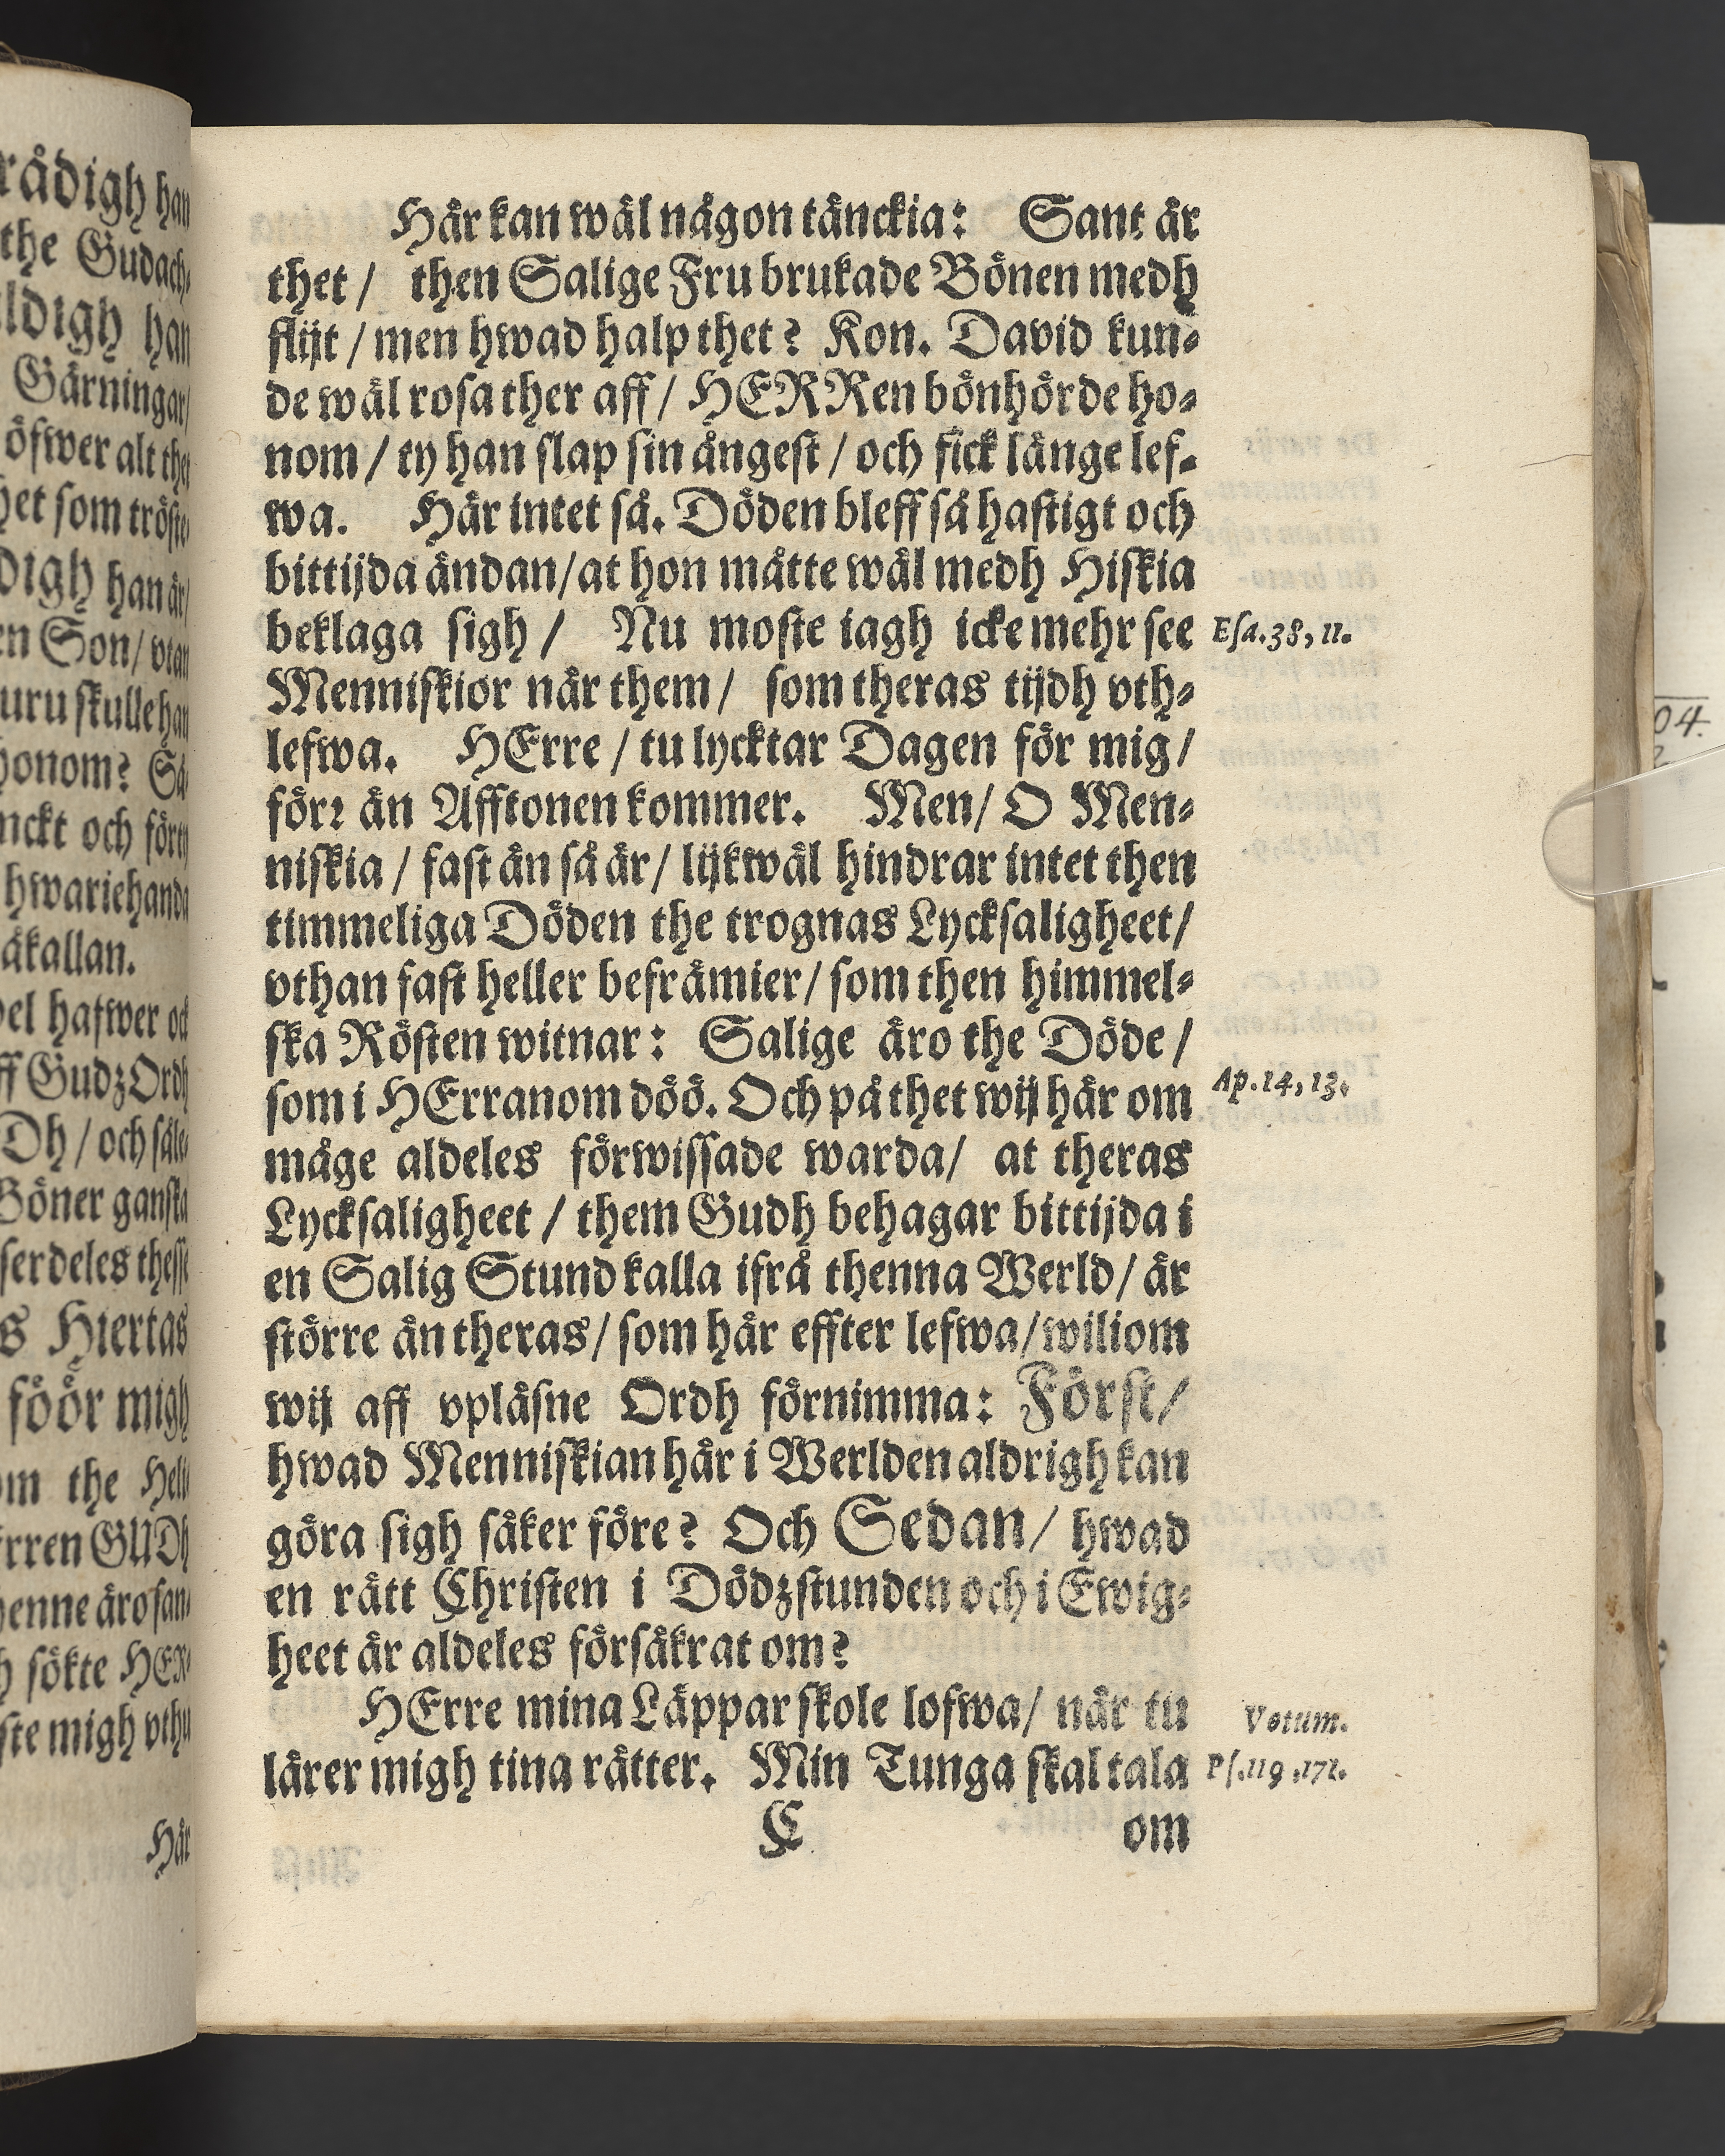 rådigh han
the Gudach-
ldigh han
Gärningar/
öfwer alt thet
het som tröste
digh han är/
en Son/ vtan
uru skulle han
honom? Så
nckt och förty
hwariehanda
åkallan.
del hafwer och
ff Gudz Ordh
Dh / och såle-
Böner ganska
serdeles thesse
s Hiertas
föör migh
om the Heli-
Erren GUDh
henne äro san-
h sökte HER-
ste migh vthu
Här
Här kan wäl någon tänckia: Sant är
thet / then Salige Fru brukade Bönen medh
flijt / men hwad halp thet? Kon. David kun-
de wäl rosa ther aff / HERRen bönhörde ho-
nom / ty han slap sin ångest / och fick länge lef-
wa. Här intet så. Döden bleff så hastigt och
bittijda ändan/ at hon måtte wäl medh Hiskia
beklaga sigh / Nu moste iagh icke mehr see
Esa.38, 11.
Menniskior när them / som theras tijdh vth-
lefwa. HErre / tu lycktar Dagen för mig /
förr än Afftonen kommer. Men/ O Men-
niskia / fast än så är/ lijkwäl hindrar intet then
timmeliga Döden the trognas Lycksaligheet/
vthan fast heller befrämier/ som then himmel-
ska Rösten witnar: Salige äro the Döde /
som i HErranom döö. Och på thet wij här om
Ap.14, 13.
måge aldeles förwissade warda/ at theras
Lycksaligheet / them Gudh behagar bittijda i
en Salig Stund kalla ifrå thenna Werld/ är
större än theras/ som här effter lefwa/ wiliom
wij aff vpläsne Ordh förnimma: Först/
hwad Menniskian här i Werlden aldrigh kan
göra sigh säker före? Och Sedan/ hwad
en rätt Christen i Dödzstunden och i Ewig-
heet är aldeles försäkrat om?
HErre mina Läppar skole lofwa/ när tu
Votum.
lärer migh tina rätter. Min Tunga skal tala
Ps.119,171.
C om
04.